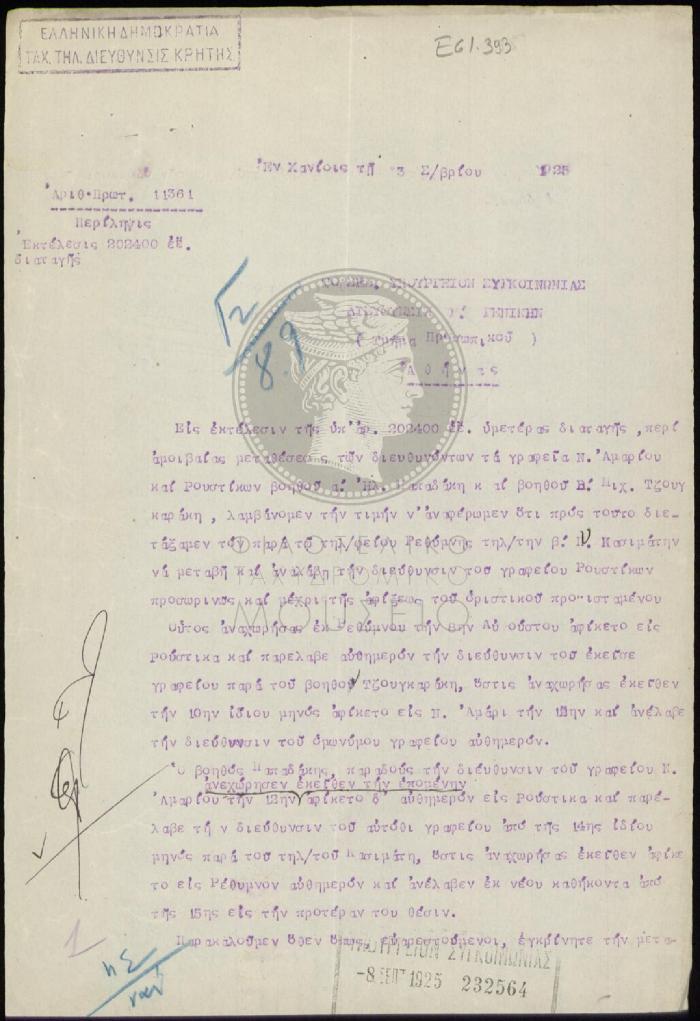 ΕΛΛΗΝΙΚΗ ΔΗΜΟΚΡΑΤΙΑ
ΤΑΧ. ΤΗΛ. ΔΙΕΥΘΥΝΣΙΣ ΚΡΗΤΗΣ
E61.393
Ἐν Χανίοις τῇ 3 Σ/βρίου 1925
Ἀριθ.Πρωτ. 11361
Περίληψις
Ἐκτέλεσις 202400 ἐ.ἔ.
διαταγῆς
ΣΥΓΚΟΙΝΩΝΙΑΣ
ΓΕΝΙΚΗΝ
( Τμῆμα Προσωπικοῦ )
Ἀθήνας
8.9
Εἰς ἐκτέλεσιν τῆς ὑπ' ἀρ. 202400 ἐ.ἔ. ὑμετέρας διαταγῆς , περί
ἀμοιβαίας μεταθέσεως τῶν διευθυνόντων τά γραφεῖα Ν. Ἀμαρίου
καί Ρουστίκων βοηθοῦ α. Ἠλ. Παπαδάκη κ αί βοηθοῦ Β. Μιχ. Τζουγ
καράκη , λαμβάνομεν τήν τιμήν ν' ἀναφέρωμεν ὅτι πρός τοῦτο διε-
τάξαμεν τόν παρά τῷ τηλ/φείου Ρεθύμνης τηλ/τήν β. Ν. Κασιμάτην
νά μεταβῇ καί ἀναλάβῃ τήν διεύθυνσιν τοῦ γραφείου Ρουστίκων
προσωρινῶς καί μέχρι τῆς ἀφίξεως τοῦ ὁριστικοῦ προϊσταμένου
Οὗτος ἀναχωρήσας ἐκ Ρεθύμνου τήν 8ην Αὐ ούστου ἀφίκετο εἰς
Ρούστικα καί παρέλαβε αὐθημερόν τήν διεύθυνσιν τοῦ ἐκεῖσε
γραφείου παρά τοῦ βοηθοῦ Τζουγκαράκη, ὅστις ἀναχωρήσας ἐκεῖθεν
τήν 10ην ἰδίου μηνός ἀφίκετο εἰς Ν. Ἀμάρι τήν 12ην καί ἀνέλαβε
τήν διεύθυνσιν τοῦ ὁμωνύμου γραφείου αὐθημερόν.
Ὁ βοηθός Παπαδάκης, παραδούς τήν διεύθυνσιν τοῦ γραφείου Ν.
ἀνεχώρησεν ἐκεῖθεν τήν ἐπομένην
Ἀμαρίου τήν 12ην ἀφίκετο δ' αὐθημερόν εἰς Ρούστικα καί παρέ-
λαβε τή ν διεύθυνσιν τοῦ αὐτόθι γραφείου ἀπό τῆς 14ης ἰδίου
μηνός παρά τοῦ τηλ/τοῦ Κασιμάτη, ὅστις ἀναχωρήσας ἐκεῖθεν ἀφίκε
το εἰς Ρέθυμνον αὐθημερόν καί ἀνέλαβεν ἐκ νέου καθήκοντα ἀπό
τῆς 15ης εἰς τήν προτέραν του θέσιν.
Παρακαλοῦμεν ὅθεν ὅπως, εὐαρεστούμενοι, ἐγκρίνητε τήν μετα-
1
ΥΠΟΥΡΓΕΙΟΝ ΣΥΓΚΟΙΝΩΝΙΑΣ
-8 ΣΕΠΤ 1925 232564
ΦΙΛΟΤΕΛΙΚΟ
ΤΑΧΥΔΡΟΜΙΚΟ
ΜΟΥΣΕΙΟ